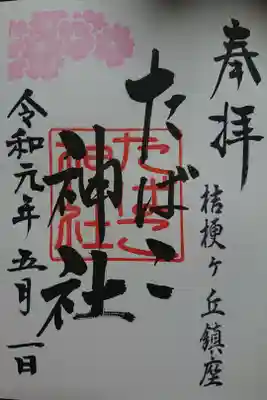 奉拝
桔梗ヶ丘鎮座
たばこ
神社
たばこ
神社
令和元年五月一日